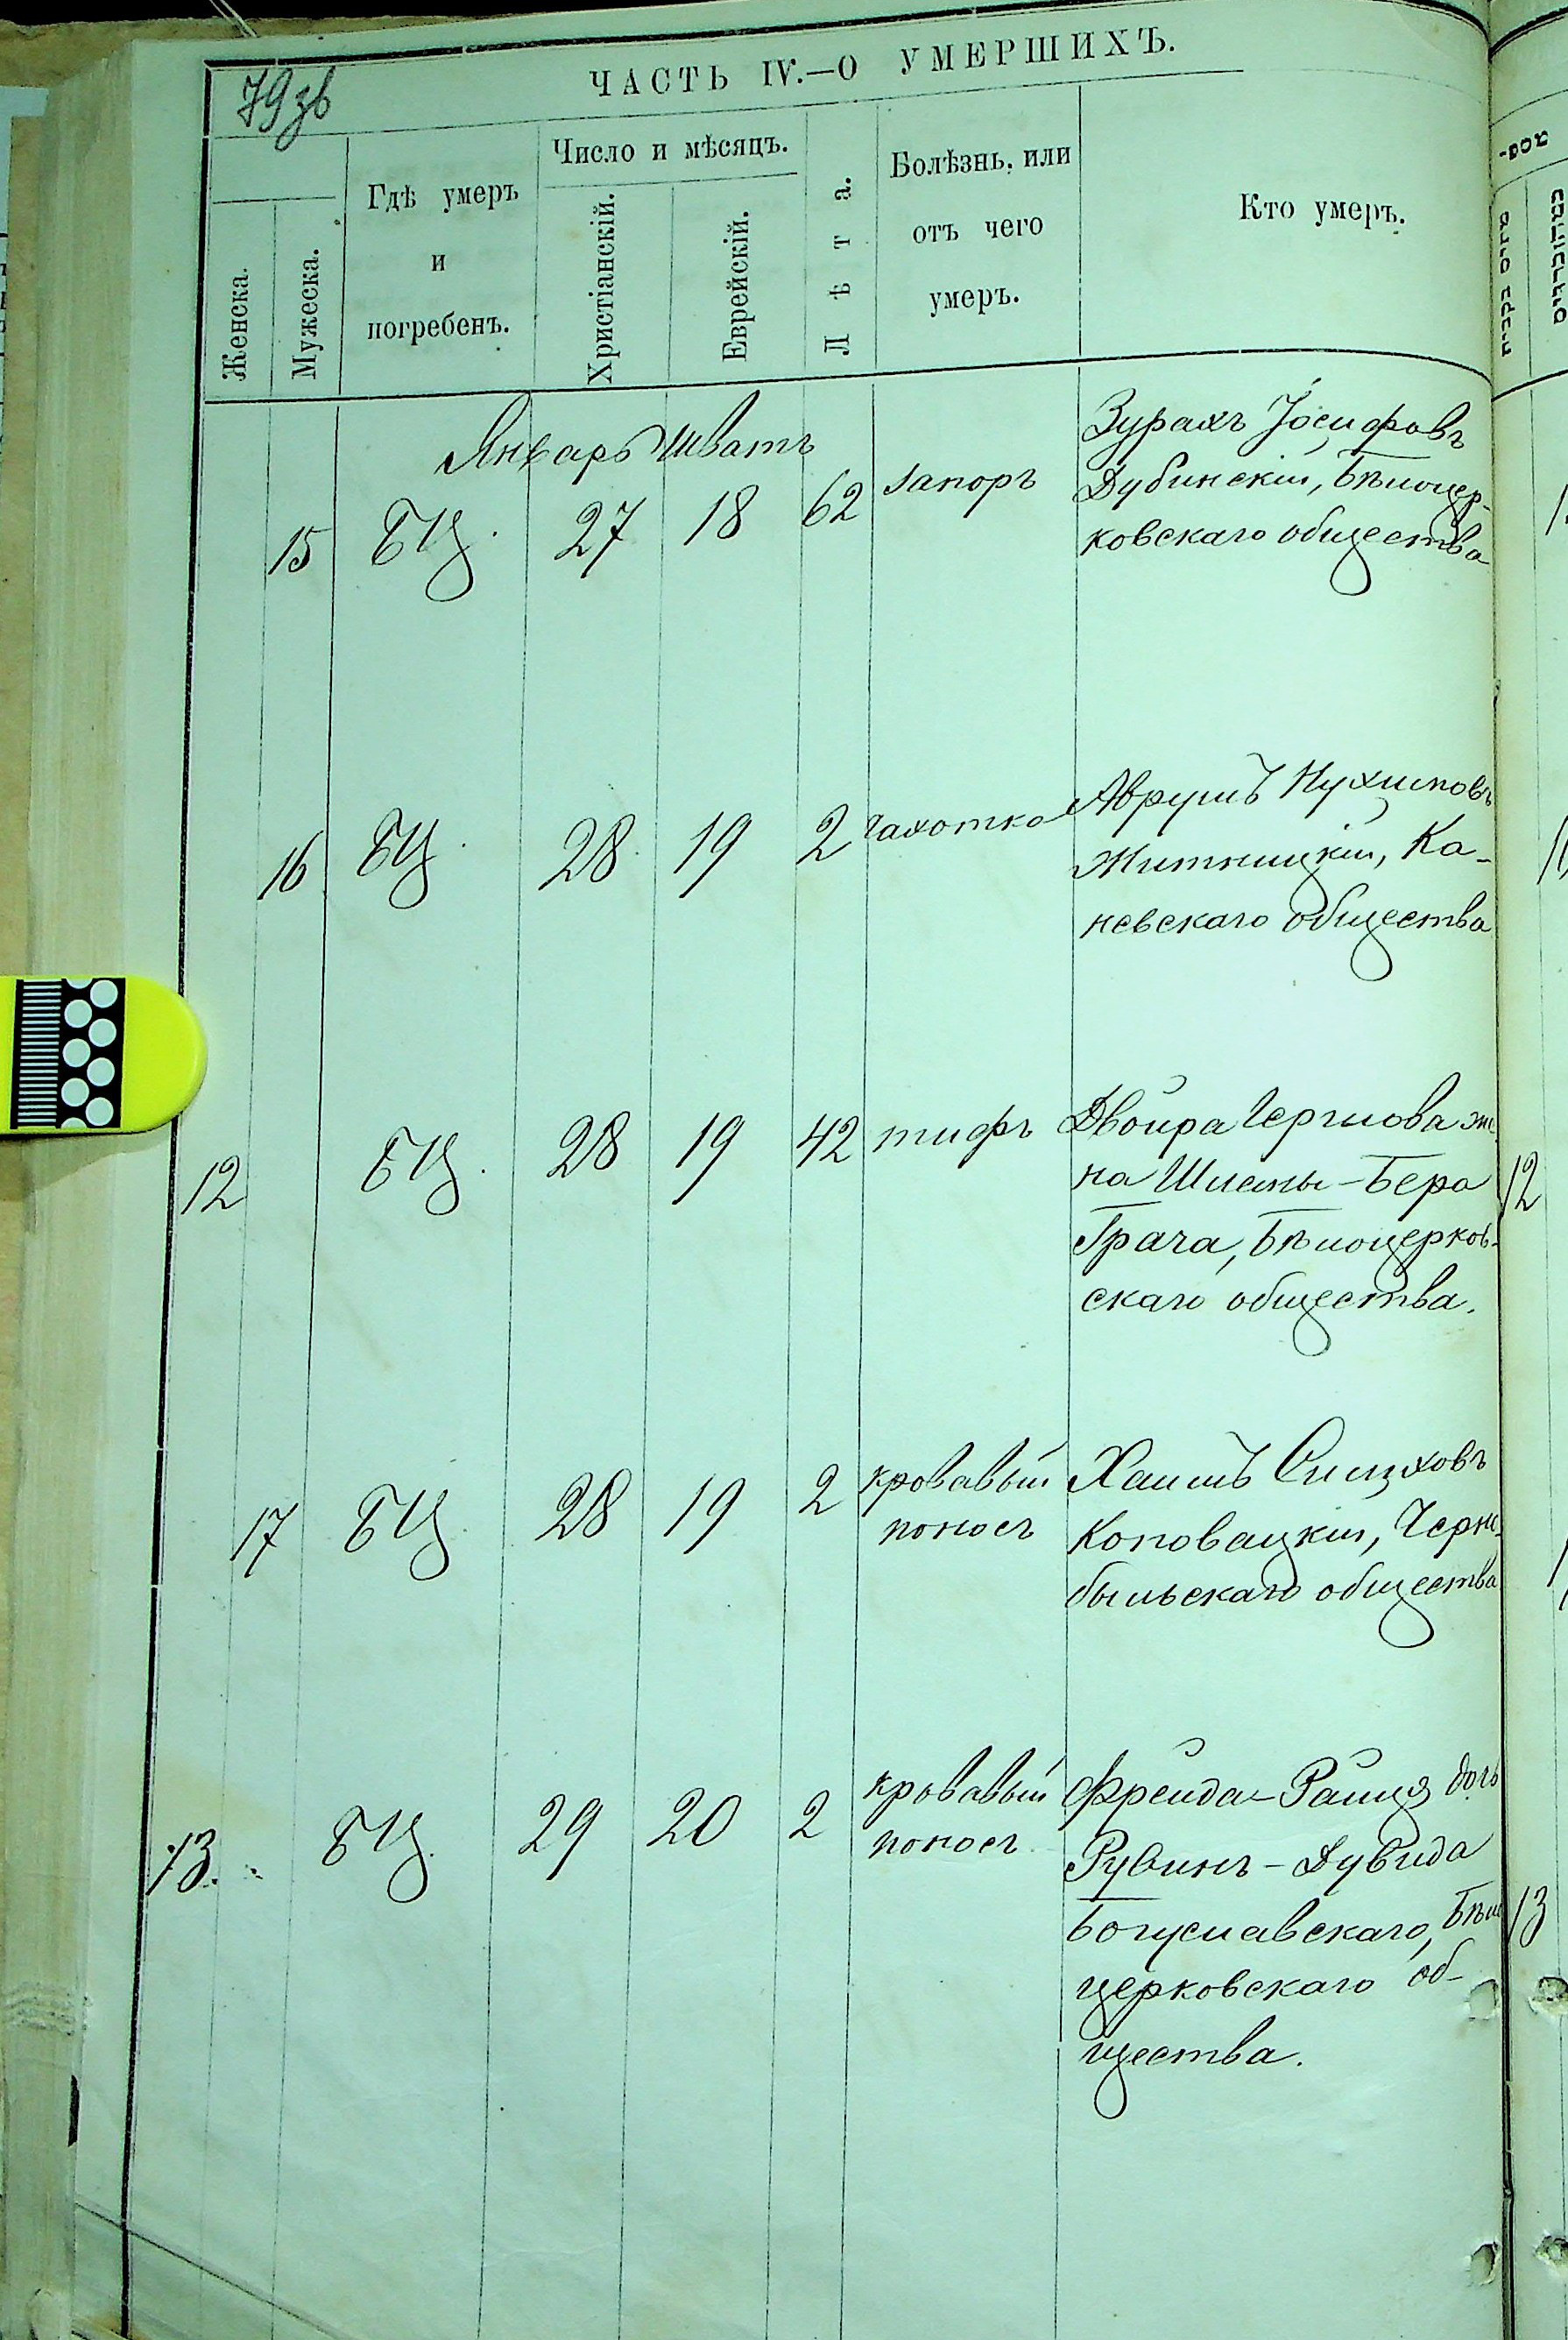 79зв
ЧАСТЬ IV.—О УМЕРШИХЪ.
Женска.
Мужеска.
Гдѣ умеръ
и
погребенъ.
Число и мѣсяцъ.
Христіанскій.
Еврейскій.
Лѣта.
Болѣзнь, или
отъ чего
умеръ.
Кто умеръ.
Январь Шватъ
15 БЦ. 27 18 62 запоръ
Зурахъ Іосифовъ
Дубинскій, Бѣлоцер-
ковскаго общества
16 БЦ. 28 19 2 чахотка
Аврумъ Нухимовъ
Житницкій, Ка-
невскаго общества
12 БЦ. 28 19 42 тифъ
Двойра Гершова же-
на Шлемы-Бера
Грача, Бѣлоцерков-
скаго общества.
12
17 БЦ. 28 19 2 кровавый
поносъ
Хаимъ
Коповацкій, Черно-
быльскаго общества
13. БЦ. 29 20 2 кровавый
поносъ
Фрейда-Райця дочь
Рувинъ-Дувида
Богуславскаго, Бѣло
церковскаго об-
щества.
13